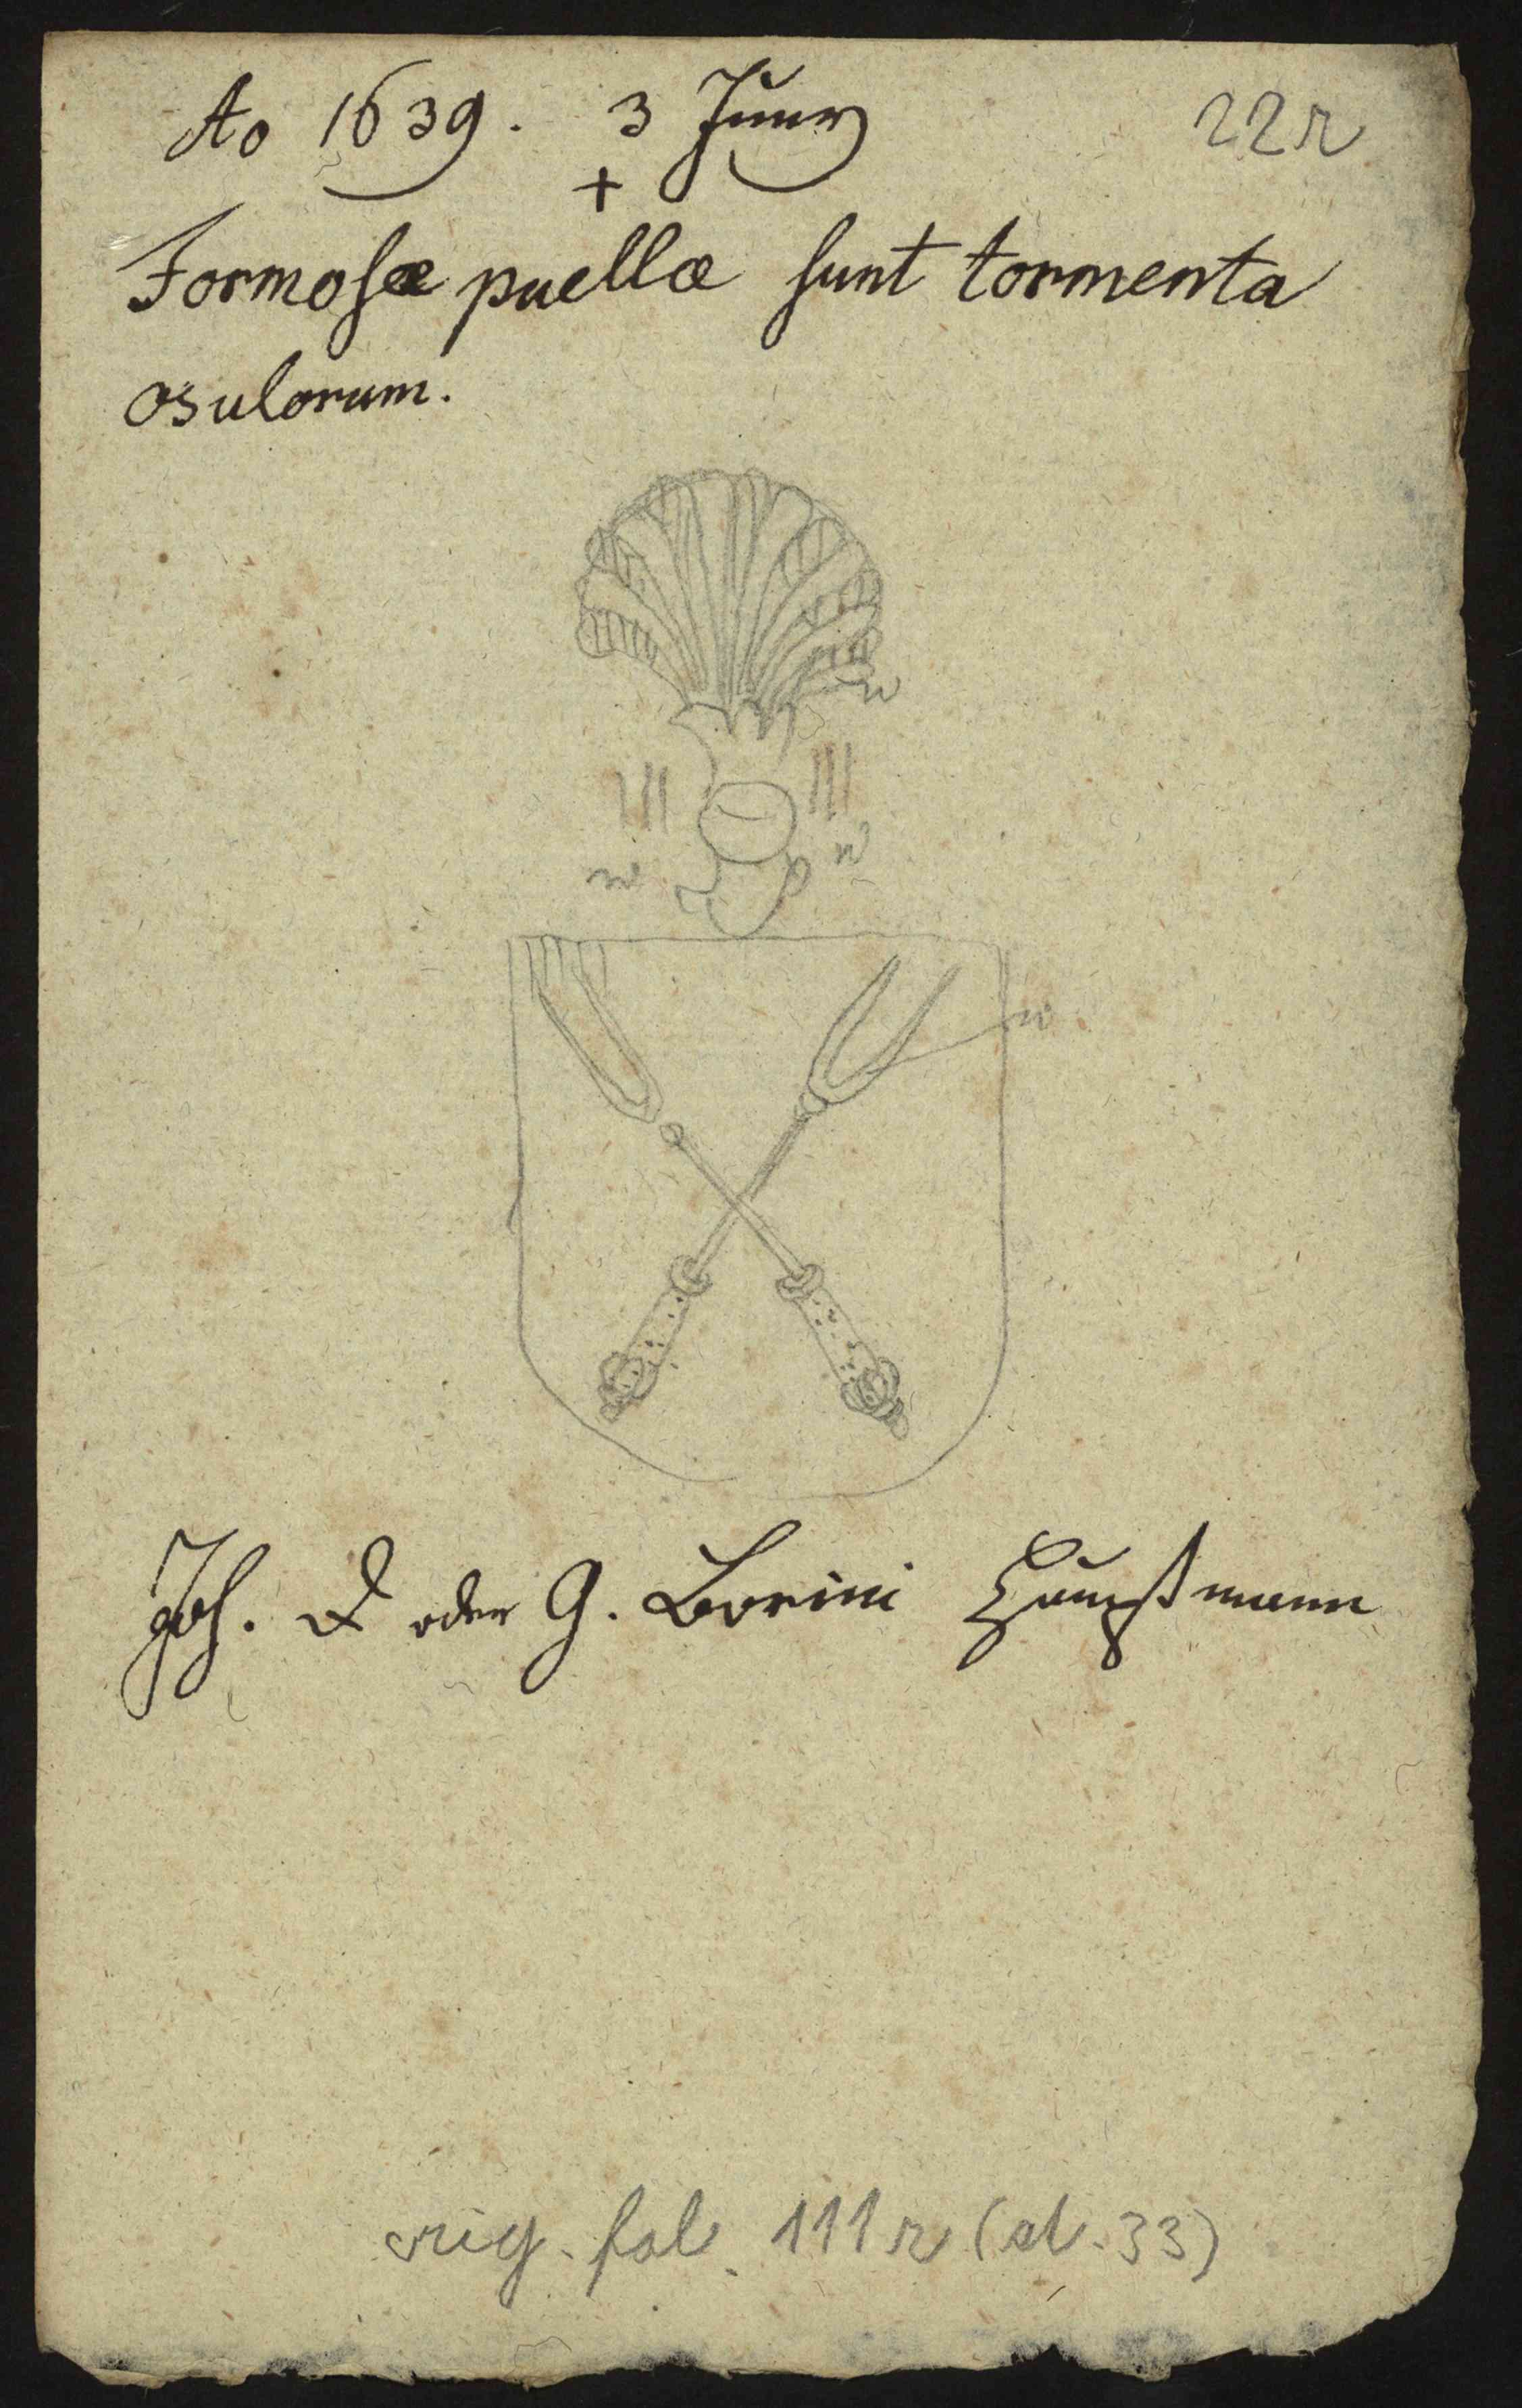 Ao 1639. 3 Juny
22r
+
Formosæ puellæ sunt tormenta
osulorum.
w
w w
w
Joh. D oder G. Borini Hauptmann
orig. fol. 111r (al. 33)